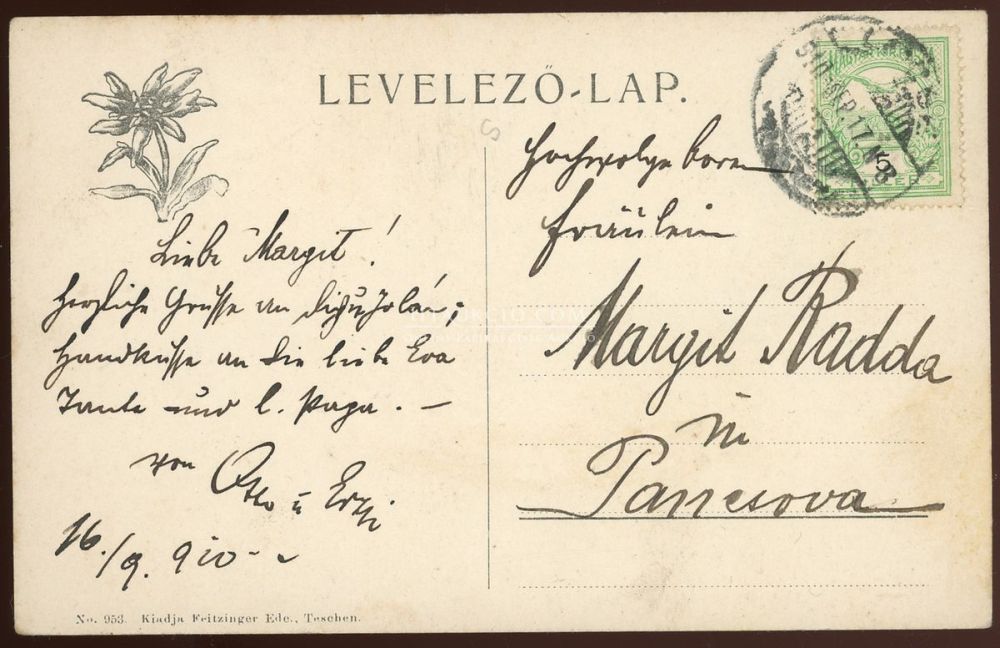 LEVELEZŐ-LAP.
Liebe Margit!
Herzliche Grüsse an Dich u Jolán;
Handküsse an die liebe Eva
Tante und l. Papa. –
von Otto u Erzsi
16./9. 910
Hochwolgeboren
Fräulein
Margit Radda
in
Pancsova
No. 953. Kiadja Feitzinger Ede., Teschen.